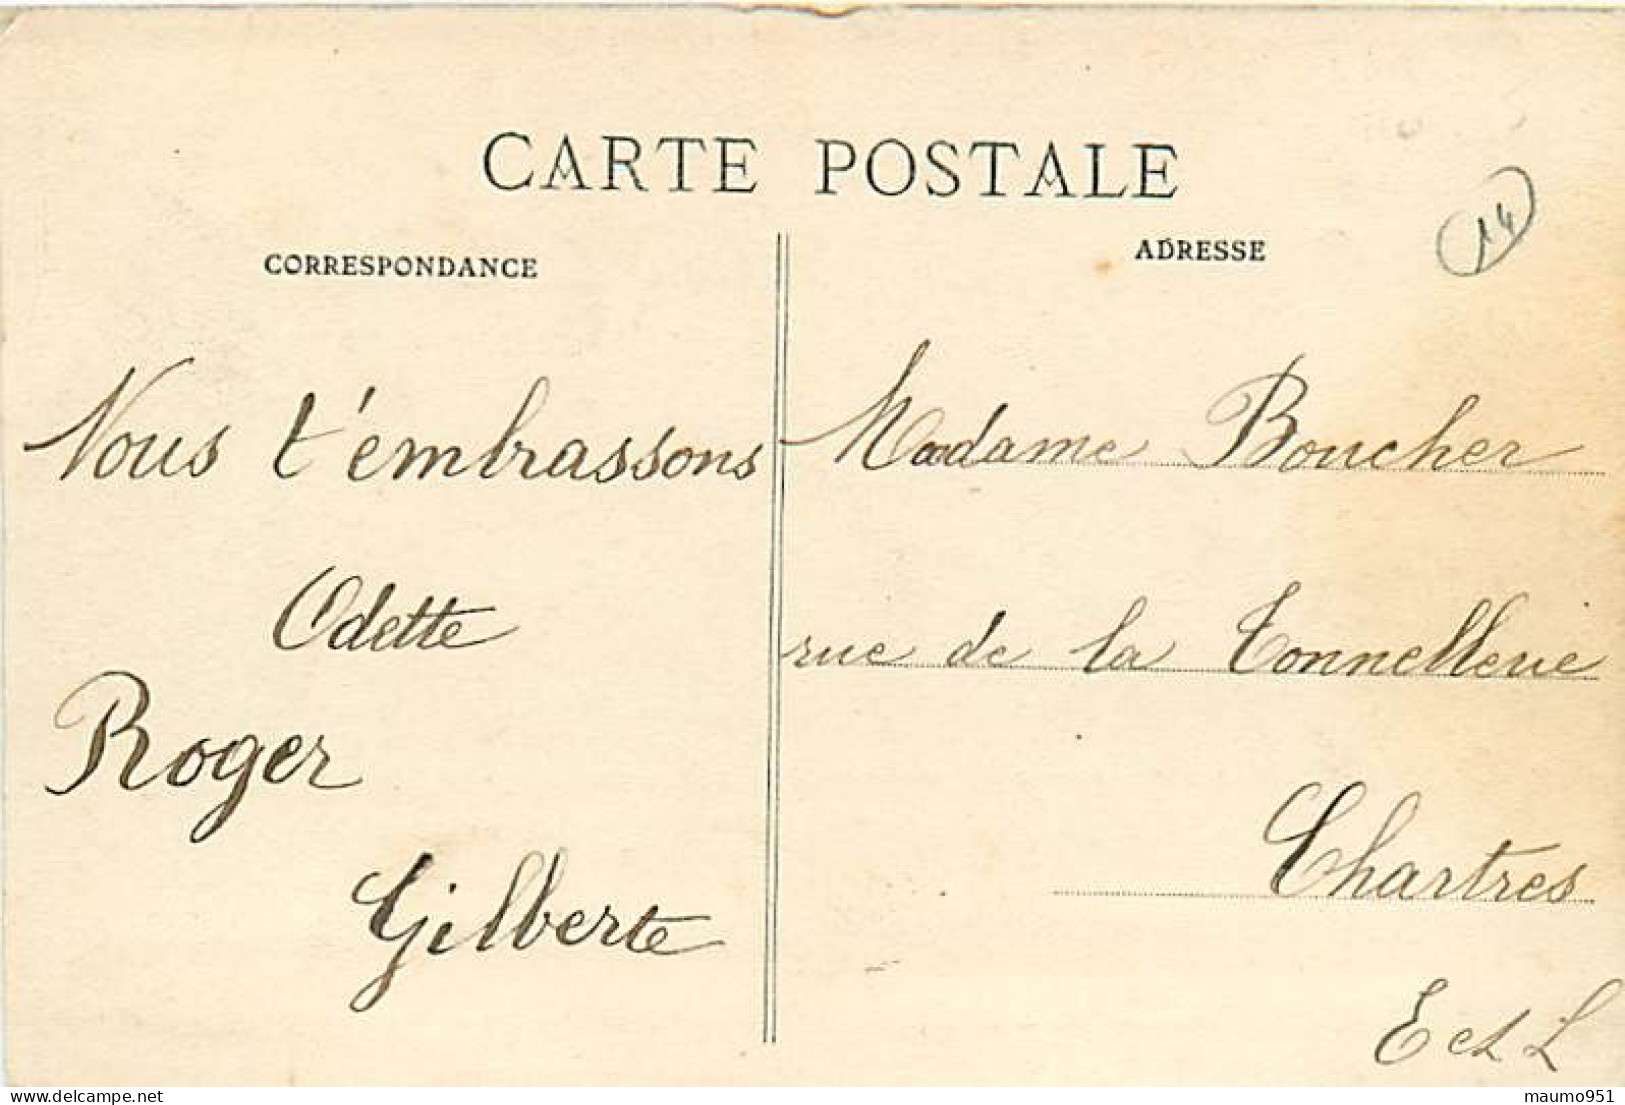 CARTE POSTALE
CORRESPONDANCE
ADRESSE
14
Nous t'embrassons
Odette
Roger
Gilberte
Madame Boucher
rue de la Tonnellerie
Chartres
E et L
maumo951